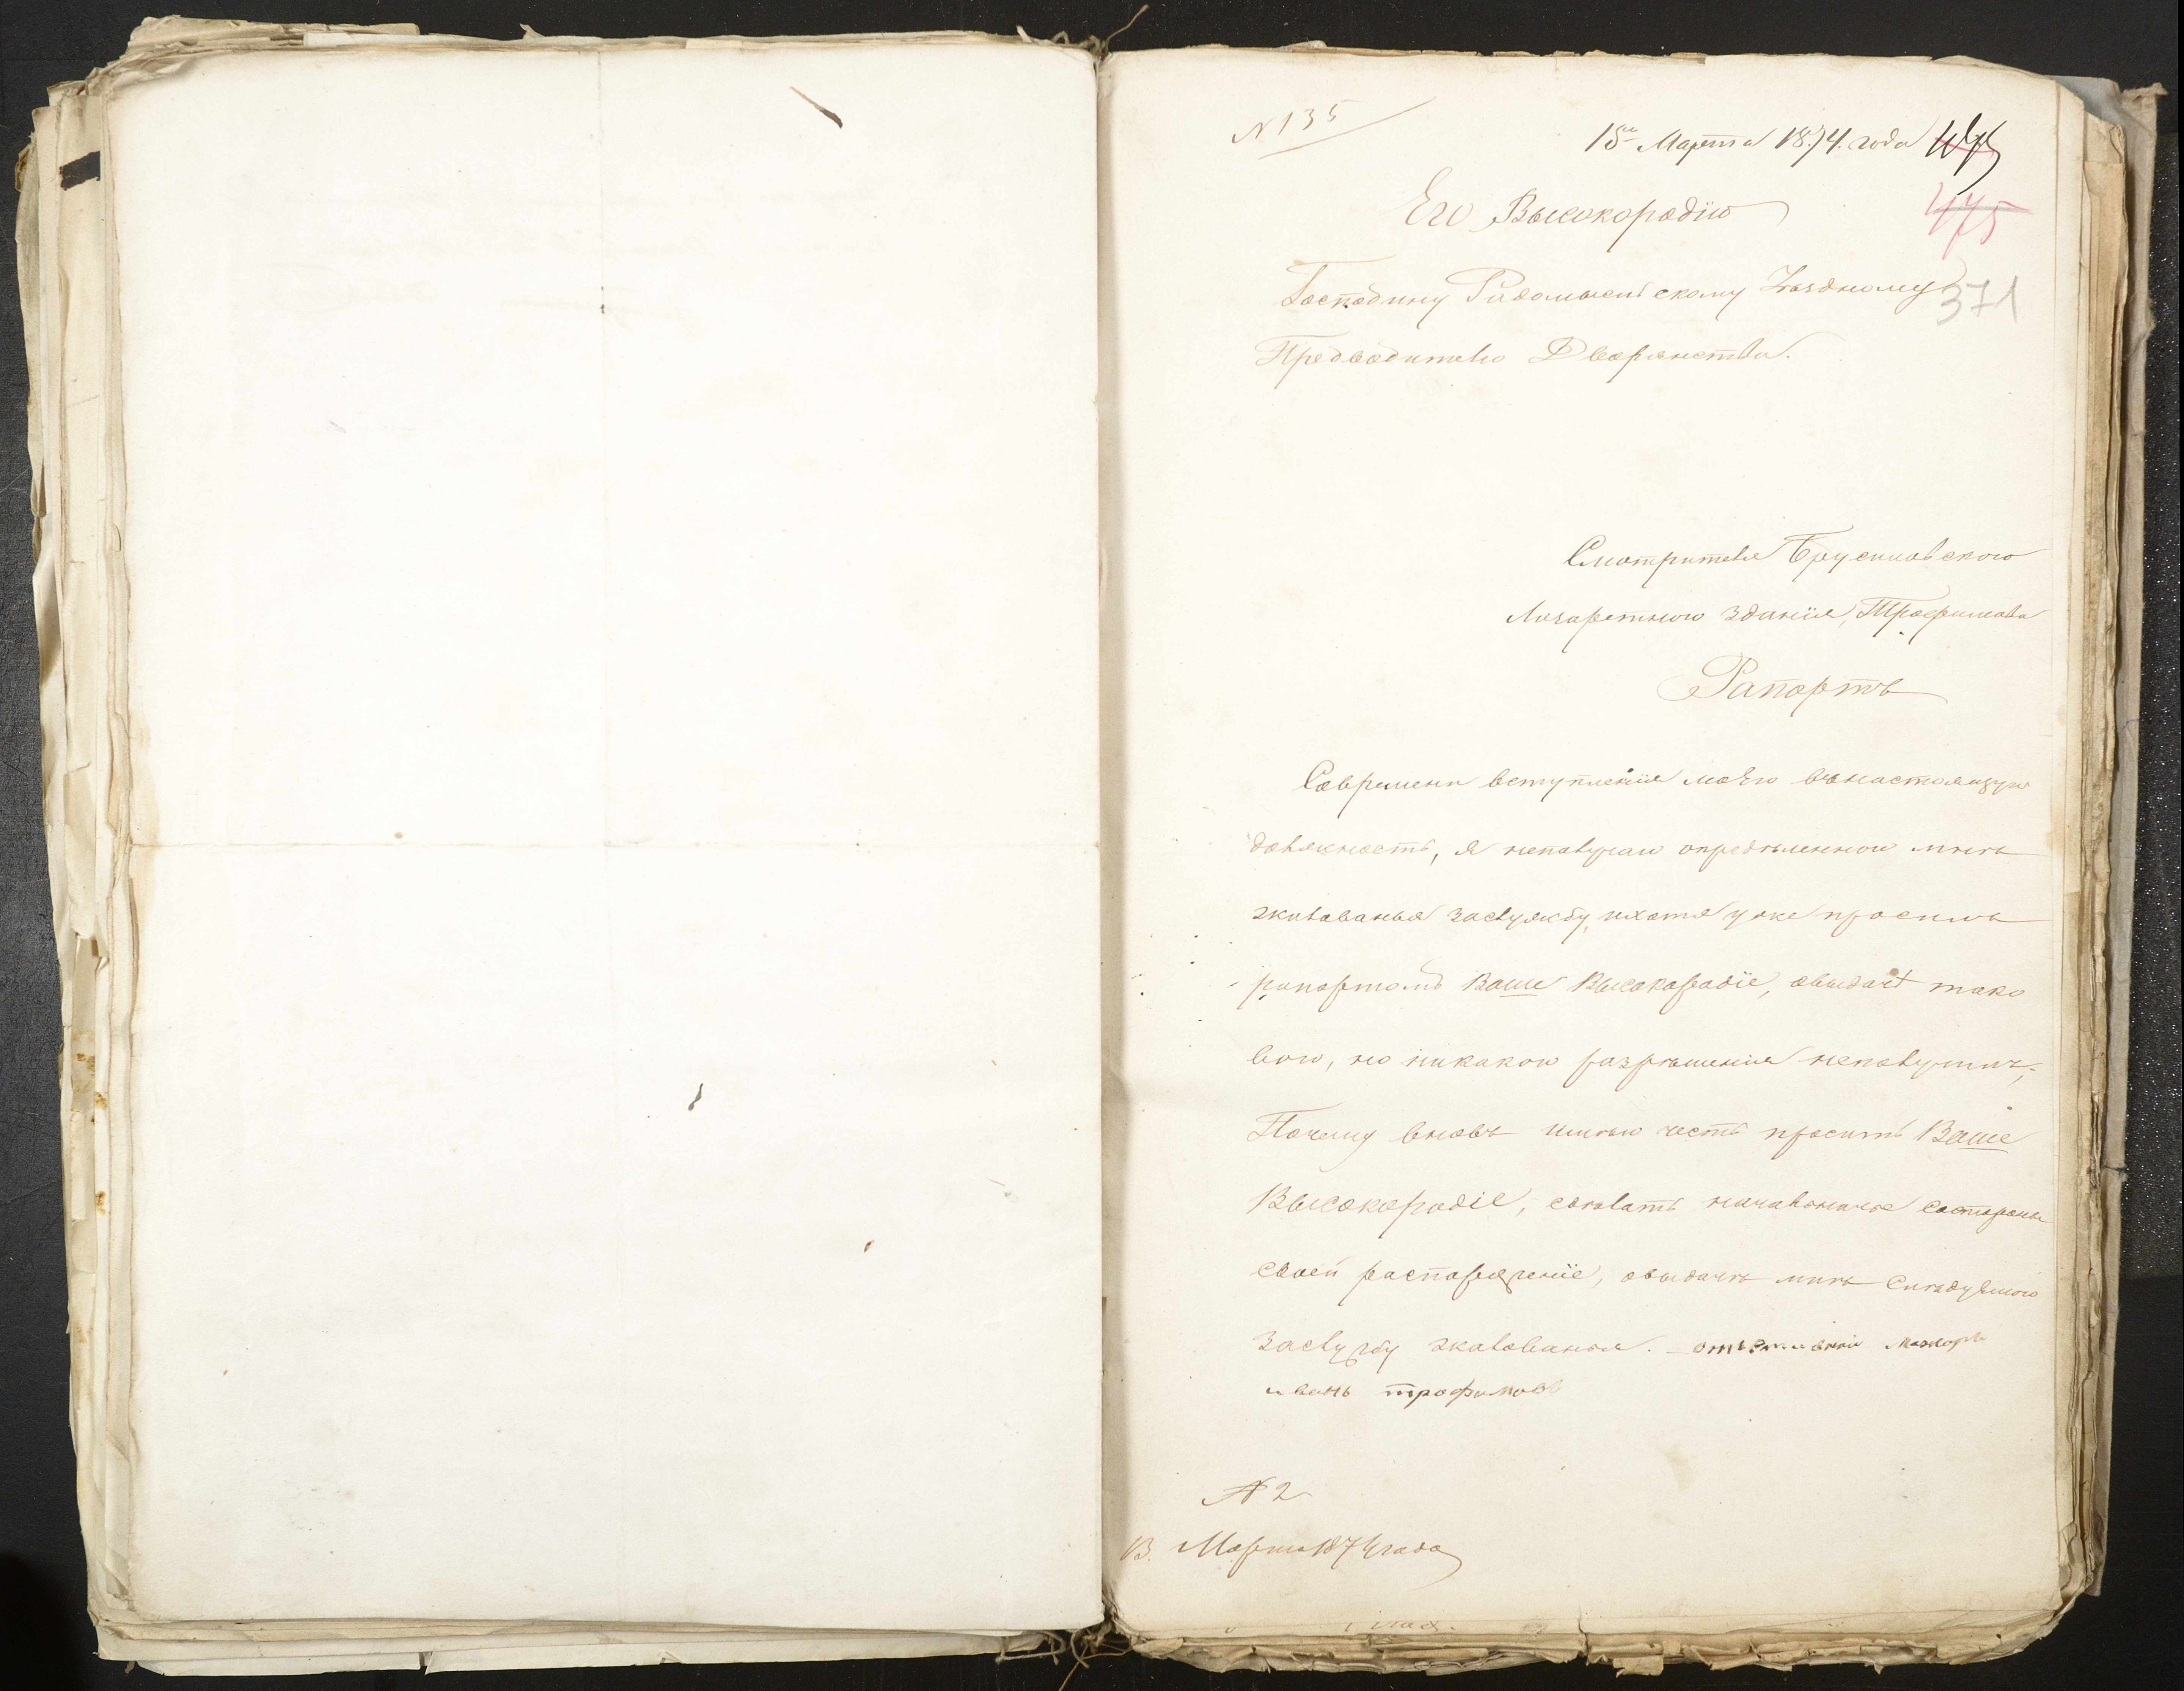 N 135
15го Марта 1874. года
475
Его Высокородію
371
Господину Радомысльскому Уѣздному
Предводителю Дворянства.
Смотрителя Брусиловского
Лазаретного зданія, Трофимова
Рапортъ
Современи вступленія моего внастоящую
должность, я неполучаю опредѣленного мнѣ
жалованья заслужбу, ихотя уже просилъ
рапортомъ Ваше Высокородіе, овыдачѣ тако
вого, но никакого разрѣшенія неполучилъ;
Почему вновь имѣю честь просить Ваше
Высокородіе, сдѣлать начальничее состороны
своей распоряженіе, овыдачѣ мнѣ
заслужбу жалованья. маиоръ
иванъ трофимовъ
N 2
13. Марта 1874 года